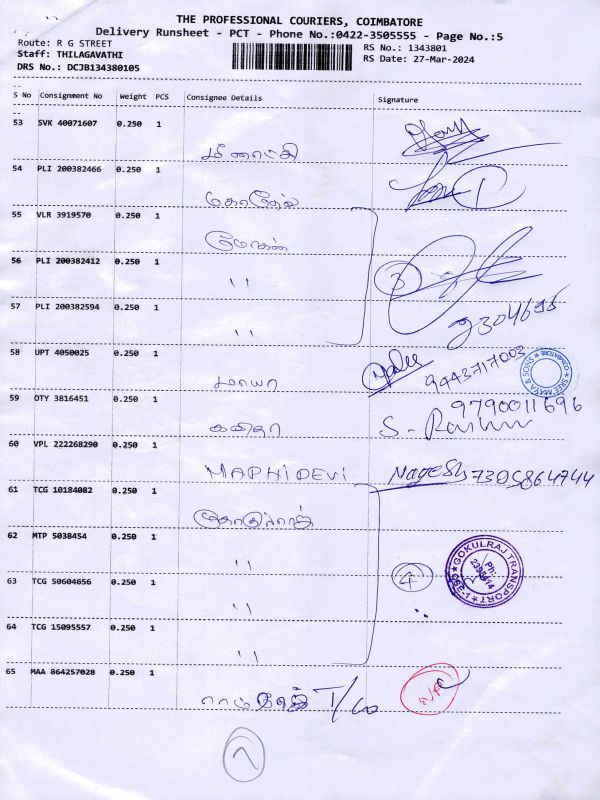 THE PROFESSIONAL COURIERS, COIMBATORE
Delivery Runsheet - PCT - Phone No.:0422-3505555 - Page No.:5
Route: R G STREET
RS No.: 1343801
Staff: THILAGAVATHI
RS Date: 27-Mar-2024
DRS No.: DCJB134380105
S No Consignment No Weight PCS Consignee Details Signature
53 SVK 40071607 0.250 1
மீனாட்சி
54 PLI 200382466 0.250 1
1
55 VLR 3919570 0.250 1
மோகன்
56 PLI 200382412 0.250 1
" 3
57 PLI 200382594 0.250 1
"
58 UPT 4050025 0.250 1
மாயா 9443717003
SREE MAYA & SONS * COIMBATORE *
59 OTY 3816451 0.250 1
9790011696
கவிதா S-
60 VPL 222268290 0.250 1
MAPHIDEVI Nagesh 7305864744
61 TCG 10184082 0.250 1
கோகுல்ராஜ்
62 MTP 5038454 0.250 1
"
GOKULRAJ TRANSPORT
Ph:
63 TCG 50604656 0.250 1
" 4
64 TCG 15095557 0.250 1
"
65 MAA 864257028 0.250 1
T/Co N/A